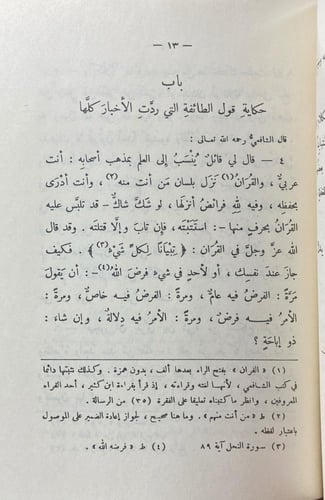 — ١٣ —
باب
حكاية قول الطائفة التي ردَّت الأخبارَ كلَّها
قال الشافعيُّ رحمه الله تعالى :
٤ — قال لي قائلٌ يُنْسَبُ إلى العلم بمذهب أصحابه : أنت
عربيٌّ ، والقُرَانُ(١) نَزَل بلسان مَن أنت منه(٢) ، وأنت أدْرَى
بحفظِه ، وفيه لله فرائضُ أنزلَها ، لو شَكَّ شاكٌّ — قد تلبّس عليه
القُرَانُ بحرفٍ منها — : اسْتَتَبْتَه ، فإن تابَ وإلَّا قتلتَه . وقد قال
الله عزَّ وجلَّ في القُرَان : ﴿ تِبْيَانًا لِكلِّ شَيْءٍ(٣) ﴾ . فكيف
جازَ عندَ نفسك ، أو لأحدٍ في شيءٍ فرضَ اللهُ(٤) — : أن يَقولَ
مَرَّةً : الفرضُ فيه عامٌّ ، ومرةً : الفرضُ فيه خاصٌّ ، ومرةً :
الأمرُ فيه فرضٌ ، ومرةً : الأمرُ فيه دِلالةٌ ، وإن شاءَ :
ذُو إباحَةٍ ؟
(١) « القران » بفتح الراء بعدها ألف ، بدون همزة . وكذلك نثبتها دائما
في كتب الشافعي ، لأنها لغته وقراءته ، إذ قرأ بقراءة ابن كثير ، أحد القراء
المعروفين ، وانظر ما كتبناه تعليقا على الفقرة (٣٥) من الرسالة .
(٢) ط « من أنت منهم » . وما هنا صحيح ، لجواز إعادة الضمير على الموصول
باعتبار لفظه .
(٣) سورة النحل آية ٨٩ (٤) ط « فرضه الله » .